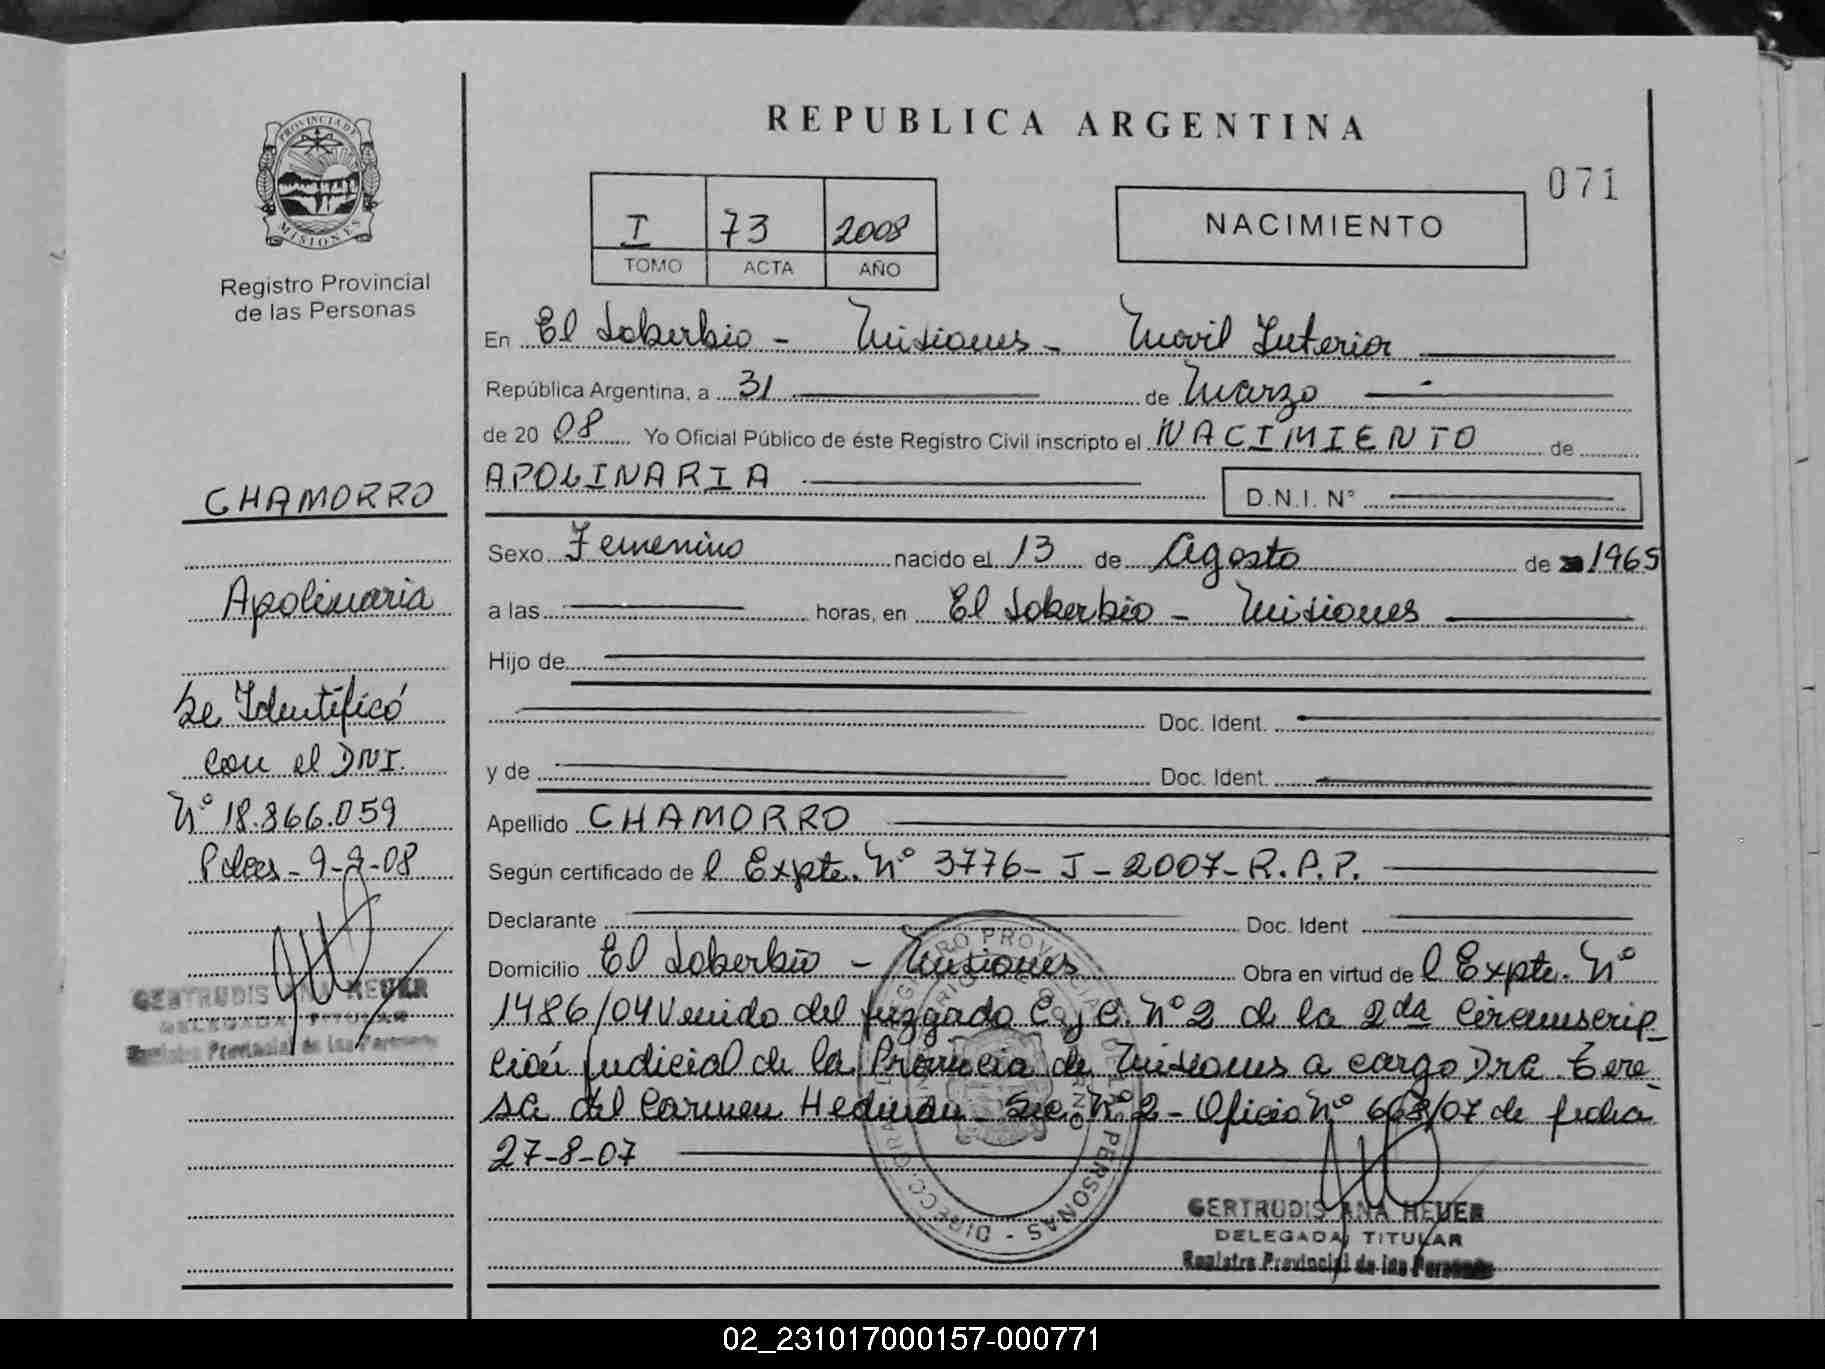 REPUBLICA ARGENTINA
071
PROVINCIA DE MISIONES
Registro Provincial
de las Personas
I 73 2008
TOMO ACTA AÑO
NACIMIENTO
En El Soberbio - Misiones - Movil Interior
República Argentina, a 31 de Marzo
de 2008 Yo Oficial Público de éste Registro Civil inscripto el NACIMIENTO de
APOLINARIA D.N.I. N°
Sexo Femenino nacido el 13 de Agosto de 1965
a las horas, en El Soberbio - Misiones
Hijo de
Doc. Ident.
y de Doc. Ident.
Apellido CHAMORRO
Según certificado de l Expte. Nº 3776-J-2007-R.P.P.
Declarante Doc. Ident
Domicilio El Soberbio - Misiones Obra en virtud de l Expte. Nº
1486/04 Venido del Juzgado C. y C. Nº 2 de la 2da Circunscrip-
ción Judicial de la Provincia de Misiones a cargo Dra Tere-
sa del Carmen Hedman Sec. Nº 2 - Oficio Nº /07 de fecha
27-8-07
GERTRUDIS ANA HEUER
DELEGADA TITULAR
Registro Provincial de las Personas
CHAMORRO
Apolinaria
Se Identificó
con el DNI.
Nº 18.866.059
9-9-08
GERTRUDIS ANA HEUER
DELEGADA TITULAR
Registro Provincial de las Personas
REGISTRO PROVINCIAL DE LAS PERSONAS - DIRECC. GRAL.
02_231017000157-000771